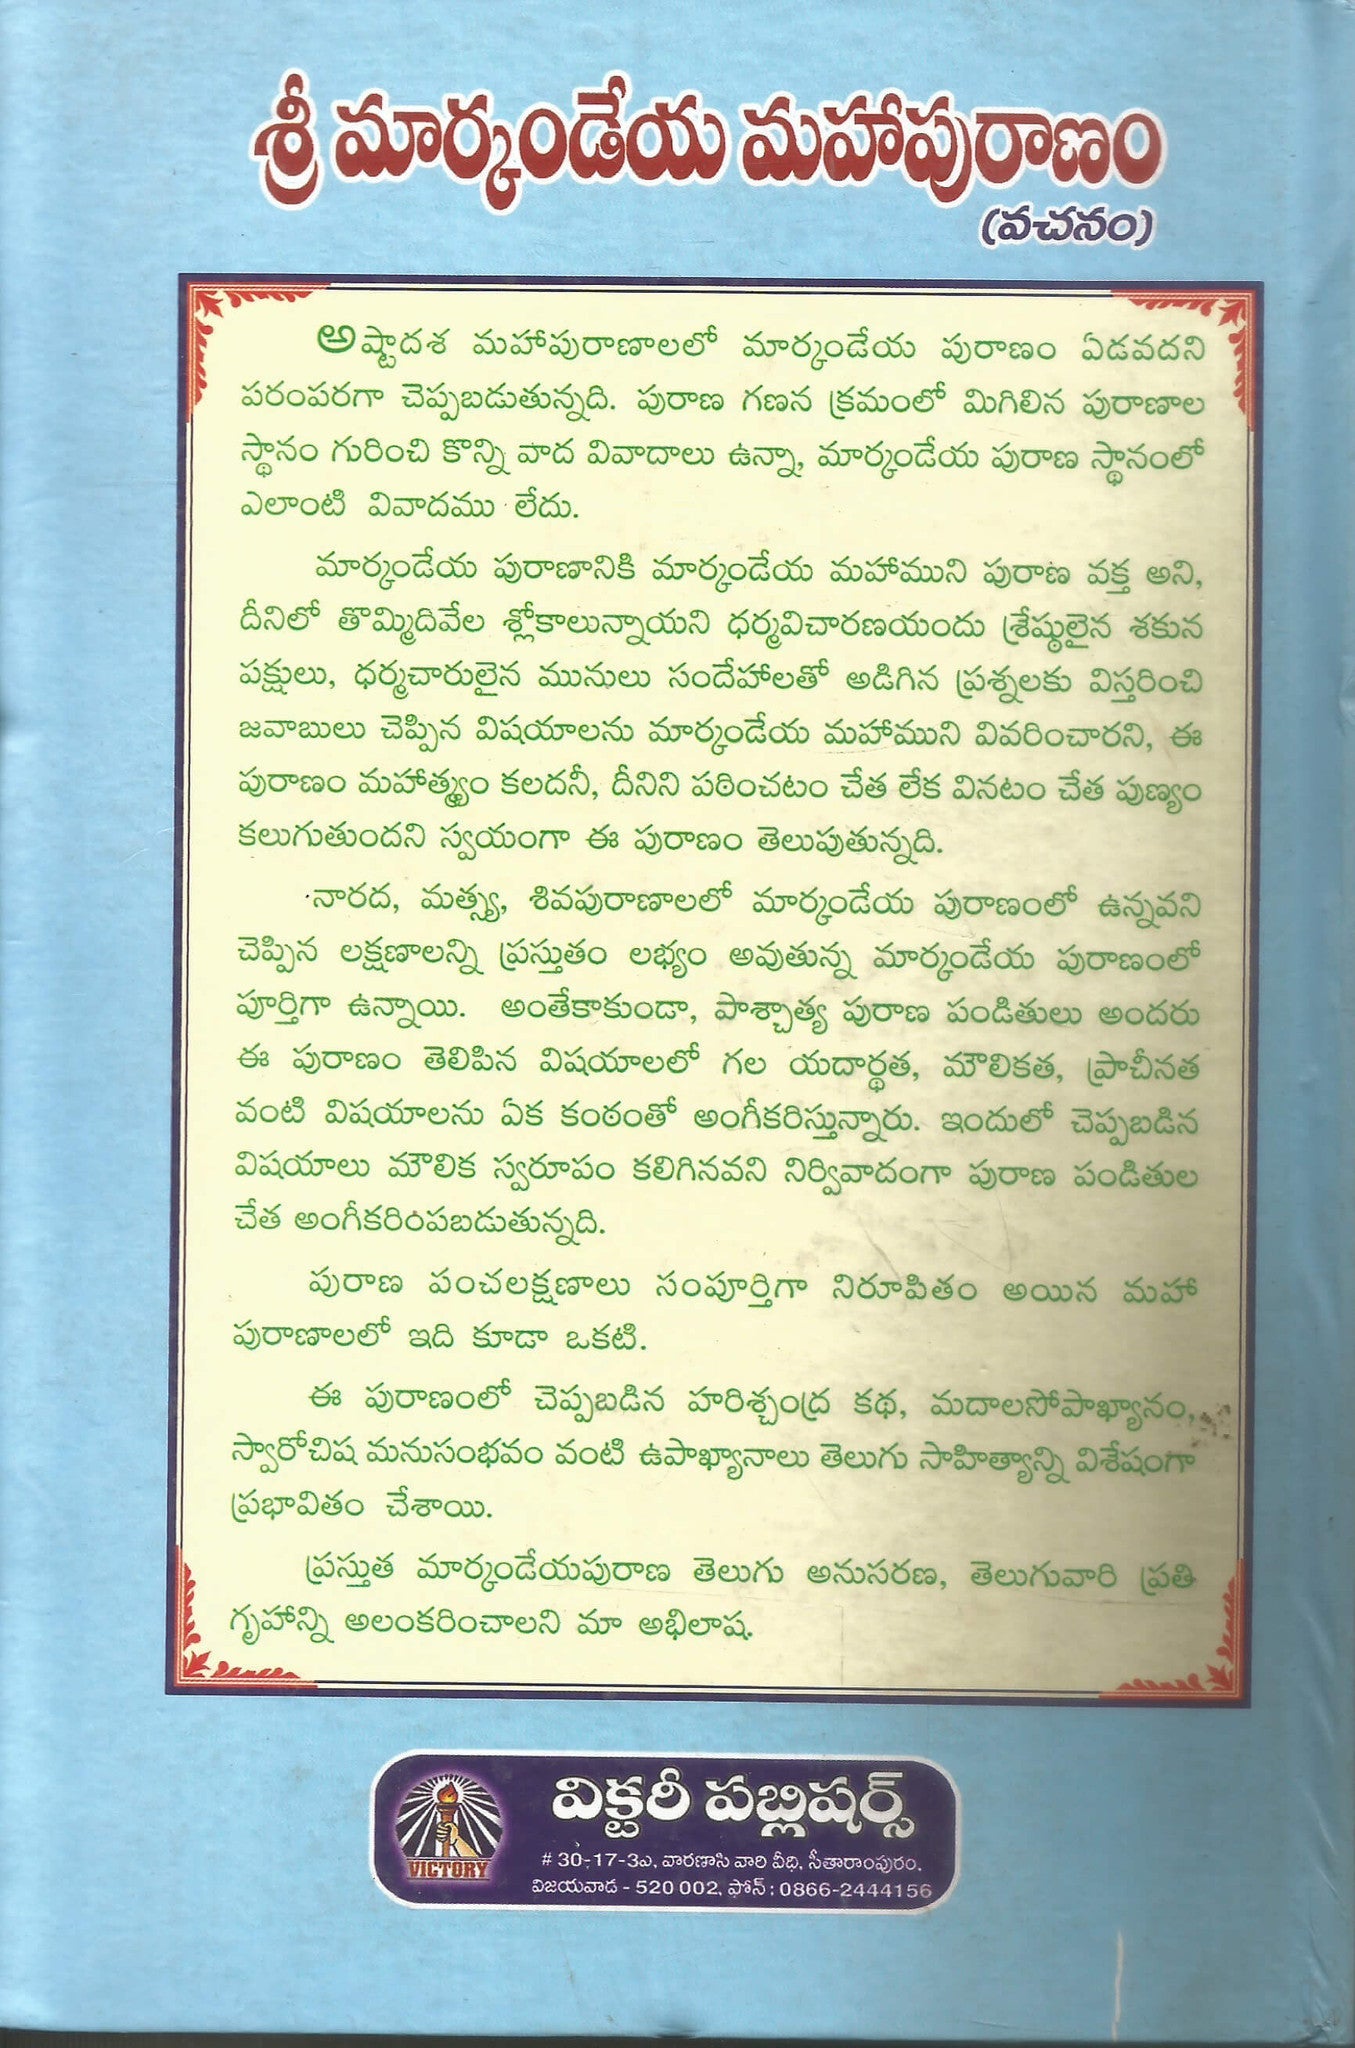 శ్రీ మార్కండేయ మహాపురాణం
(వచనం)
అష్టాదశ మహాపురాణాలలో మార్కండేయ పురాణం ఏడవదని
పరంపరగా చెప్పబడుతున్నది. పురాణ గణన క్రమంలో మిగిలిన పురాణాల
స్థానం గురించి కొన్ని వాద వివాదాలు ఉన్నా, మార్కండేయ పురాణ స్థానంలో
ఎలాంటి వివాదము లేదు.
మార్కండేయ పురాణానికి మార్కండేయ మహాముని పురాణ వక్త అని,
దీనిలో తొమ్మిదివేల శ్లోకాలున్నాయని ధర్మవిచారణయందు శ్రేష్ఠులైన శకున
పక్షులు, ధర్మచారులైన మునులు సందేహాలతో అడిగిన ప్రశ్నలకు విస్తరించి
జవాబులు చెప్పిన విషయాలను మార్కండేయ మహాముని వివరించారని, ఈ
పురాణం మహాత్మ్యం కలదనీ, దీనిని పఠించటం చేత లేక వినటం చేత పుణ్యం
కలుగుతుందని స్వయంగా ఈ పురాణం తెలుపుతున్నది.
నారద, మత్స్య, శివపురాణాలలో మార్కండేయ పురాణంలో ఉన్నవని
చెప్పిన లక్షణాలన్ని ప్రస్తుతం లభ్యం అవుతున్న మార్కండేయ పురాణంలో
పూర్తిగా ఉన్నాయి. అంతేకాకుండా, పాశ్చాత్య పురాణ పండితులు అందరు
ఈ పురాణం తెలిపిన విషయాలలో గల యదార్థత, మౌలికత, ప్రాచీనత
వంటి విషయాలను ఏక కంఠంతో అంగీకరిస్తున్నారు. ఇందులో చెప్పబడిన
విషయాలు మౌలిక స్వరూపం కలిగినవని నిర్వివాదంగా పురాణ పండితుల
చేత అంగీకరింపబడుతున్నది.
పురాణ పంచలక్షణాలు సంపూర్తిగా నిరూపితం అయిన మహా
పురాణాలలో ఇది కూడా ఒకటి.
ఈ పురాణంలో చెప్పబడిన హరిశ్చంద్ర కథ, మదాలసోపాఖ్యానం,
స్వారోచిష మనుసంభవం వంటి ఉపాఖ్యానాలు తెలుగు సాహిత్యాన్ని విశేషంగా
ప్రభావితం చేశాయి.
ప్రస్తుత మార్కండేయపురాణ తెలుగు అనుసరణ, తెలుగువారి ప్రతి
గృహాన్ని అలంకరించాలని మా అభిలాష.
VICTORY
విక్టరీ పబ్లిషర్స్
# 30-17-3ఎ, వారణాసి వారి వీధి, సీతారాంపురం,
విజయవాడ - 520 002, ఫోన్ : 0866-2444156